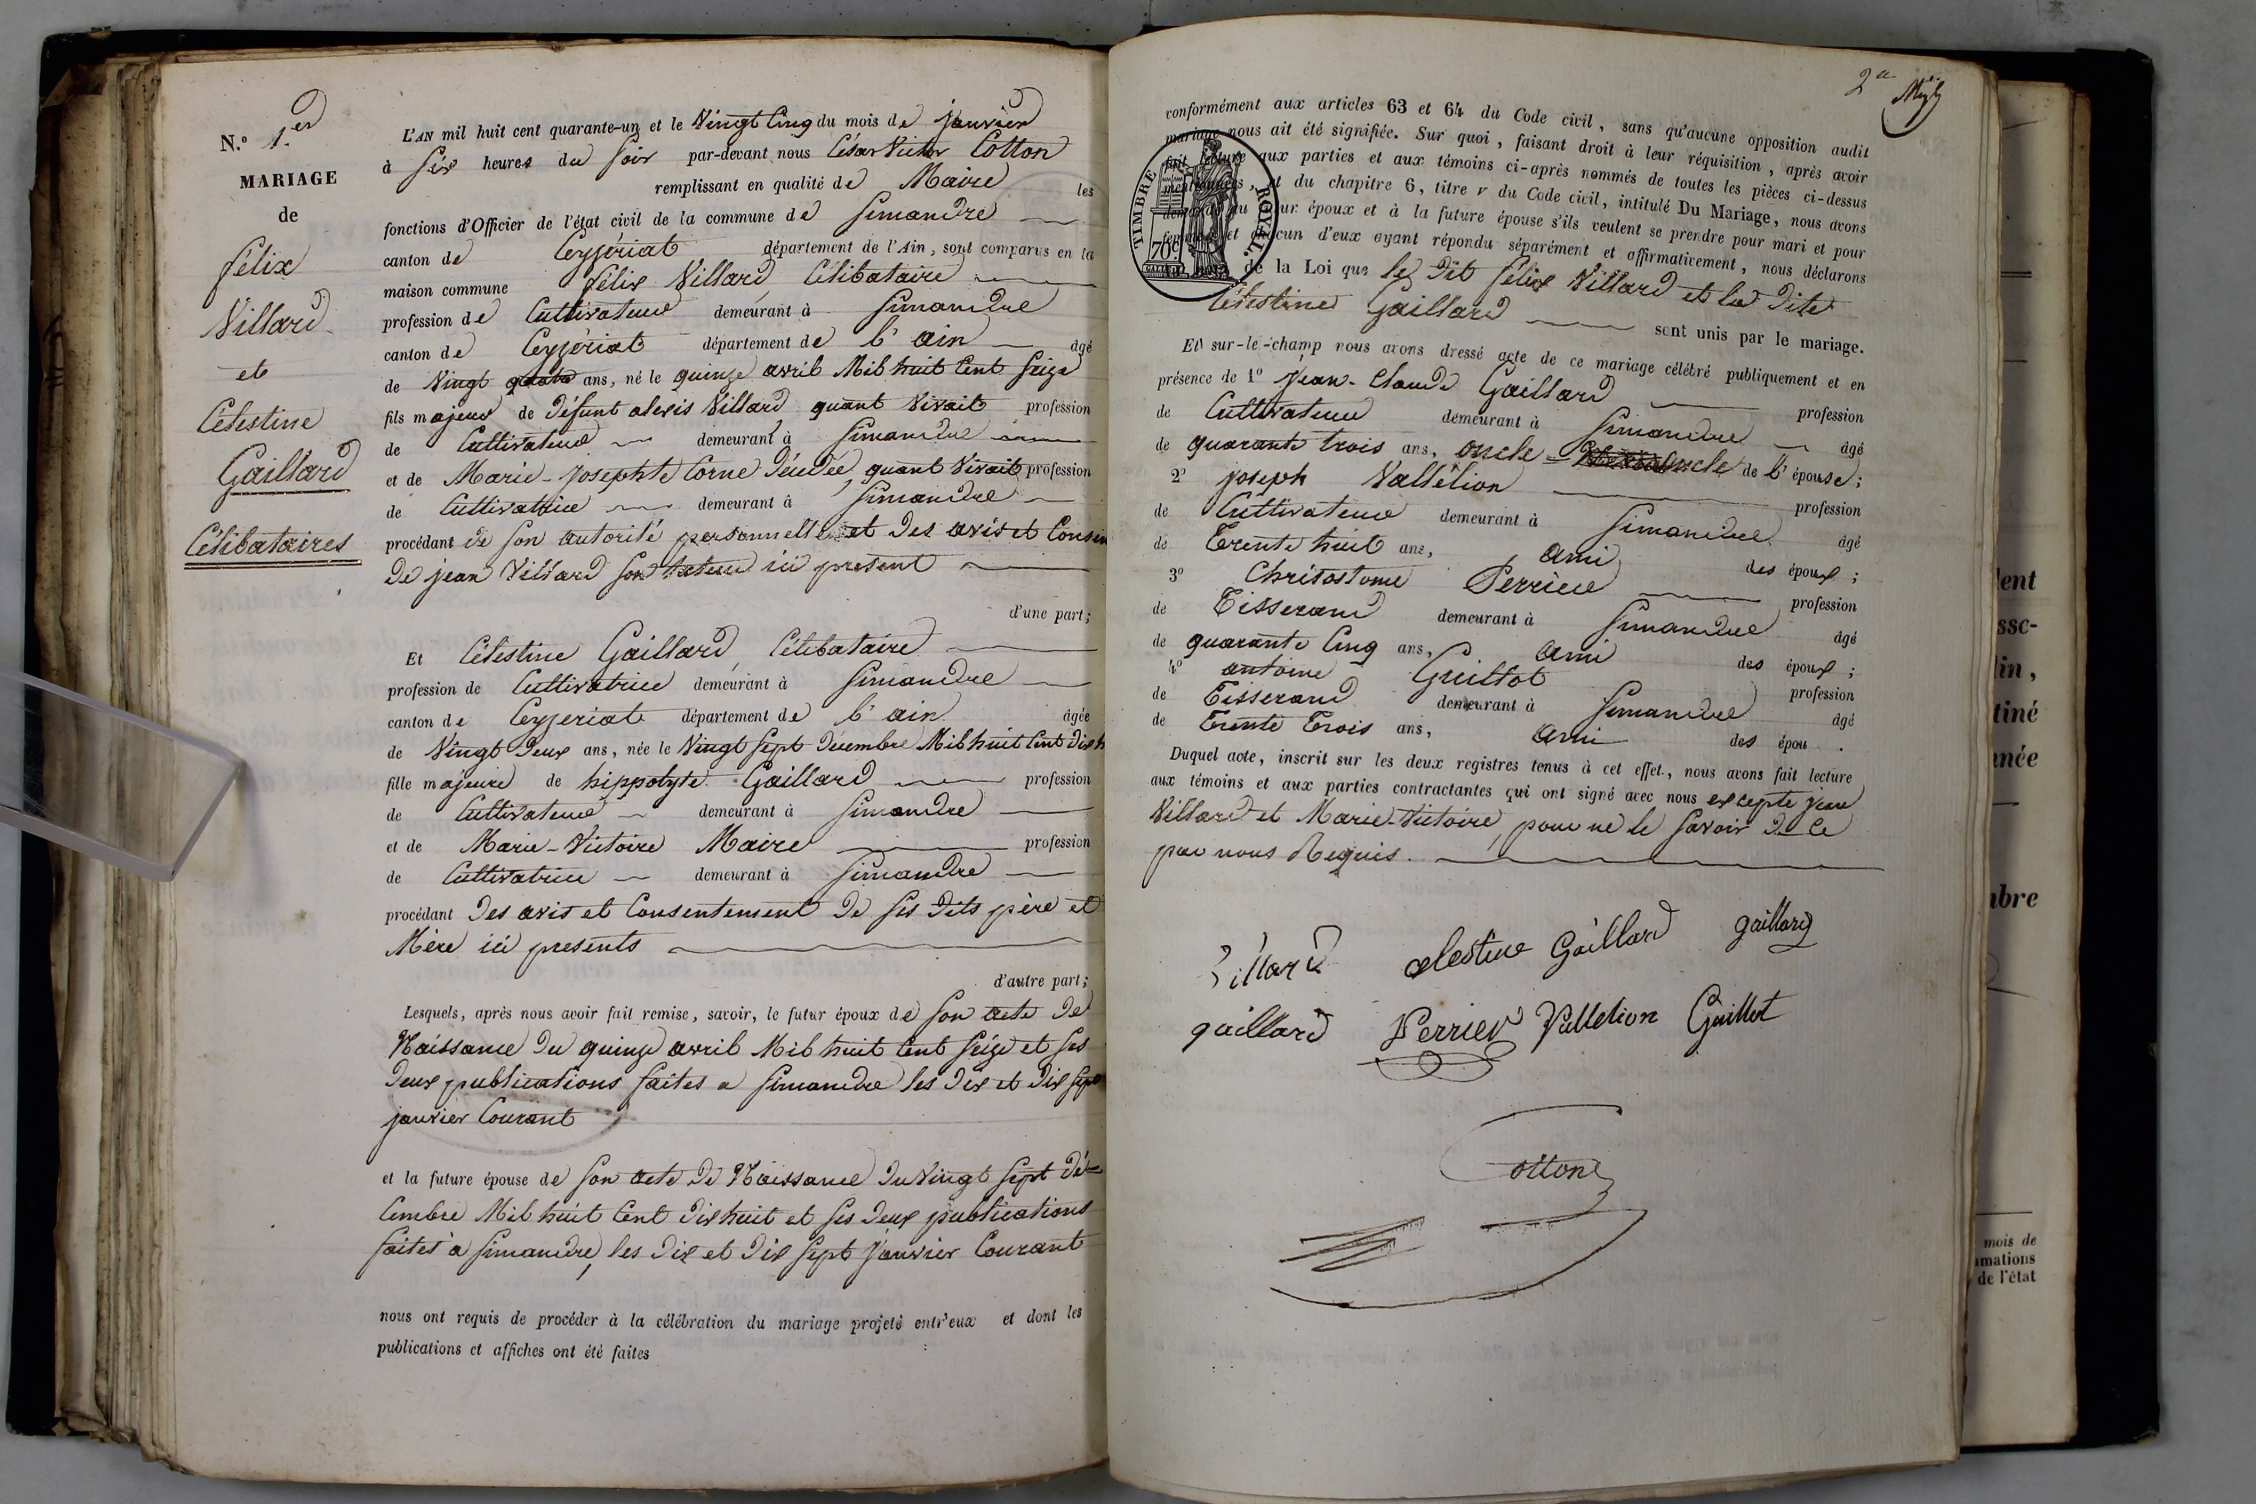 N.° 1.er
MARIAGE
de
félix
Villard
et
Célestine
Gaillard
Célibataires
L'AN mil huit cent quarante-un et le Vingt Cinq du mois de janvier
à six heures du soir par-devant nous César Victor Cotton
remplissant en qualité de Maire les
fonctions d'Officier de l'état civil de la commune de simandre
canton de Ceyzériat département de l'Ain, sont comparus en la
maison commune félix Villard, Célibataire
profession de Cultivateur demeurant à simandre
canton de Ceyzériat département de l'ain âgé
de Vingt quatre ans, né le quinze avril Mil huit Cent seize
fils majeur de défunt alexis Villard quant Vivait profession
de Cultivateur demeurant à simandre
et de Marie-josephte Corne Décédée, quant Vivait profession
de Cultivatrice demeurant à simandre
procédant de son autorité personnelle et des avis et Consen
De jean Villard son tuteur ici present
d'une part;
Et Célestine Gaillard, Célibataire
profession de Cultivatrice demeurant à simandre
canton de Ceyzeriat département de l'ain âgée
de Vingt Deux ans, née le Vingt sept Décembre Mil huit Cent dix h
fille majeure de hippolyte Gaillard profession
de Cultivateur demeurant à simandre
et de Marie-Victoire Maire profession
de Cultivatrice demeurant à simandre
procédant Des avis et Consentement De ses dits père et
Mère ici presents
d'autre part;
Lesquels, après nous avoir fait remise, savoir, le futur époux de son acte de
Naissance Du quinze avril Mil huit Cent seize et ses
Deux publications faites a simandre les Dix et Dix sept
janvier Courant
et la future épouse de son acte De Naissance Du Vingt sept Dé-
Cembre Mil huit Cent Dix huit et ses Deux publications
faites à simandre, les Dix et Dix sept janvier Courant
nous ont requis de procéder à la célébration du mariage projeté entr'eux et dont les
publications et affiches ont été faites
2e
conformément aux articles 63 et 64 du Code civil, sans qu'aucune opposition audit
mariage nous ait été signifiée. Sur quoi, faisant droit à leur réquisition, après avoir
fait lecture aux parties et aux témoins ci-après nommés de toutes les pièces ci-dessus
mentionnées, et du chapitre 6, titre V du Code civil, intitulé Du Mariage, nous avons
demandé au futur époux et à la future épouse s'ils veulent se prendre pour mari et pour
femme; et chacun d'eux ayant répondu séparément et affirmativement, nous déclarons
au nom de la Loi que le Dit félix Villard et la Dite
Célestine Gaillard sont unis par le mariage.
TIMBRE ROYAL
70c
Et sur-le-champ nous avons dressé acte de ce mariage célébré publiquement et en
présence de 1° jean-Claude Gaillard profession
de Cultivateur demeurant à simandre âgé
de quarante trois ans, oncle oncle de l'épouse;
2° joseph Vallélion profession
de Cultivateur demeurant à simandre âgé
de Trente huit ans, ami des époux;
3° Chrisostome Perrier profession
de Tisserand demeurant à simandre âgé
de quarante Cinq ans, ami des époux;
4° antoine Guillot profession
de Tisserand demeurant à simandre âgé
de Trente Trois ans, ami des épou .
Duquel acte, inscrit sur les deux registres tenus à cet effet, nous avons fait lecture
aux témoins et aux parties contractantes qui ont signé avec nous excepte jean
Villard et Marie-Victoire, pour ne le savoir De Ce
par nous Requis.
Villard Celestine Gaillard gaillard
gaillard Perrier Vallelion Guillot
Cotton
lent
ssc-
lin,
tiné
nnée
mbre
mois de
amations
de l'état